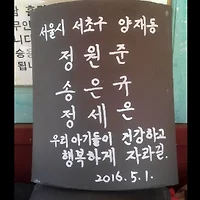 서울시 서초구 양재동
정원준
송은규
정세은
우리아기들이 건강하고
행복하게 자라길.
2016.5.1.